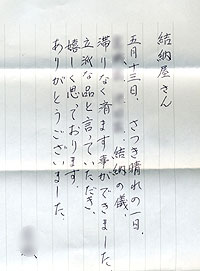 結納屋さん
五月十三日、さつき晴れの一日、
結納の儀、
滞りなく済ます事ができました
立派な品と言っていただき、
嬉しく思っております。
ありがとうございました。